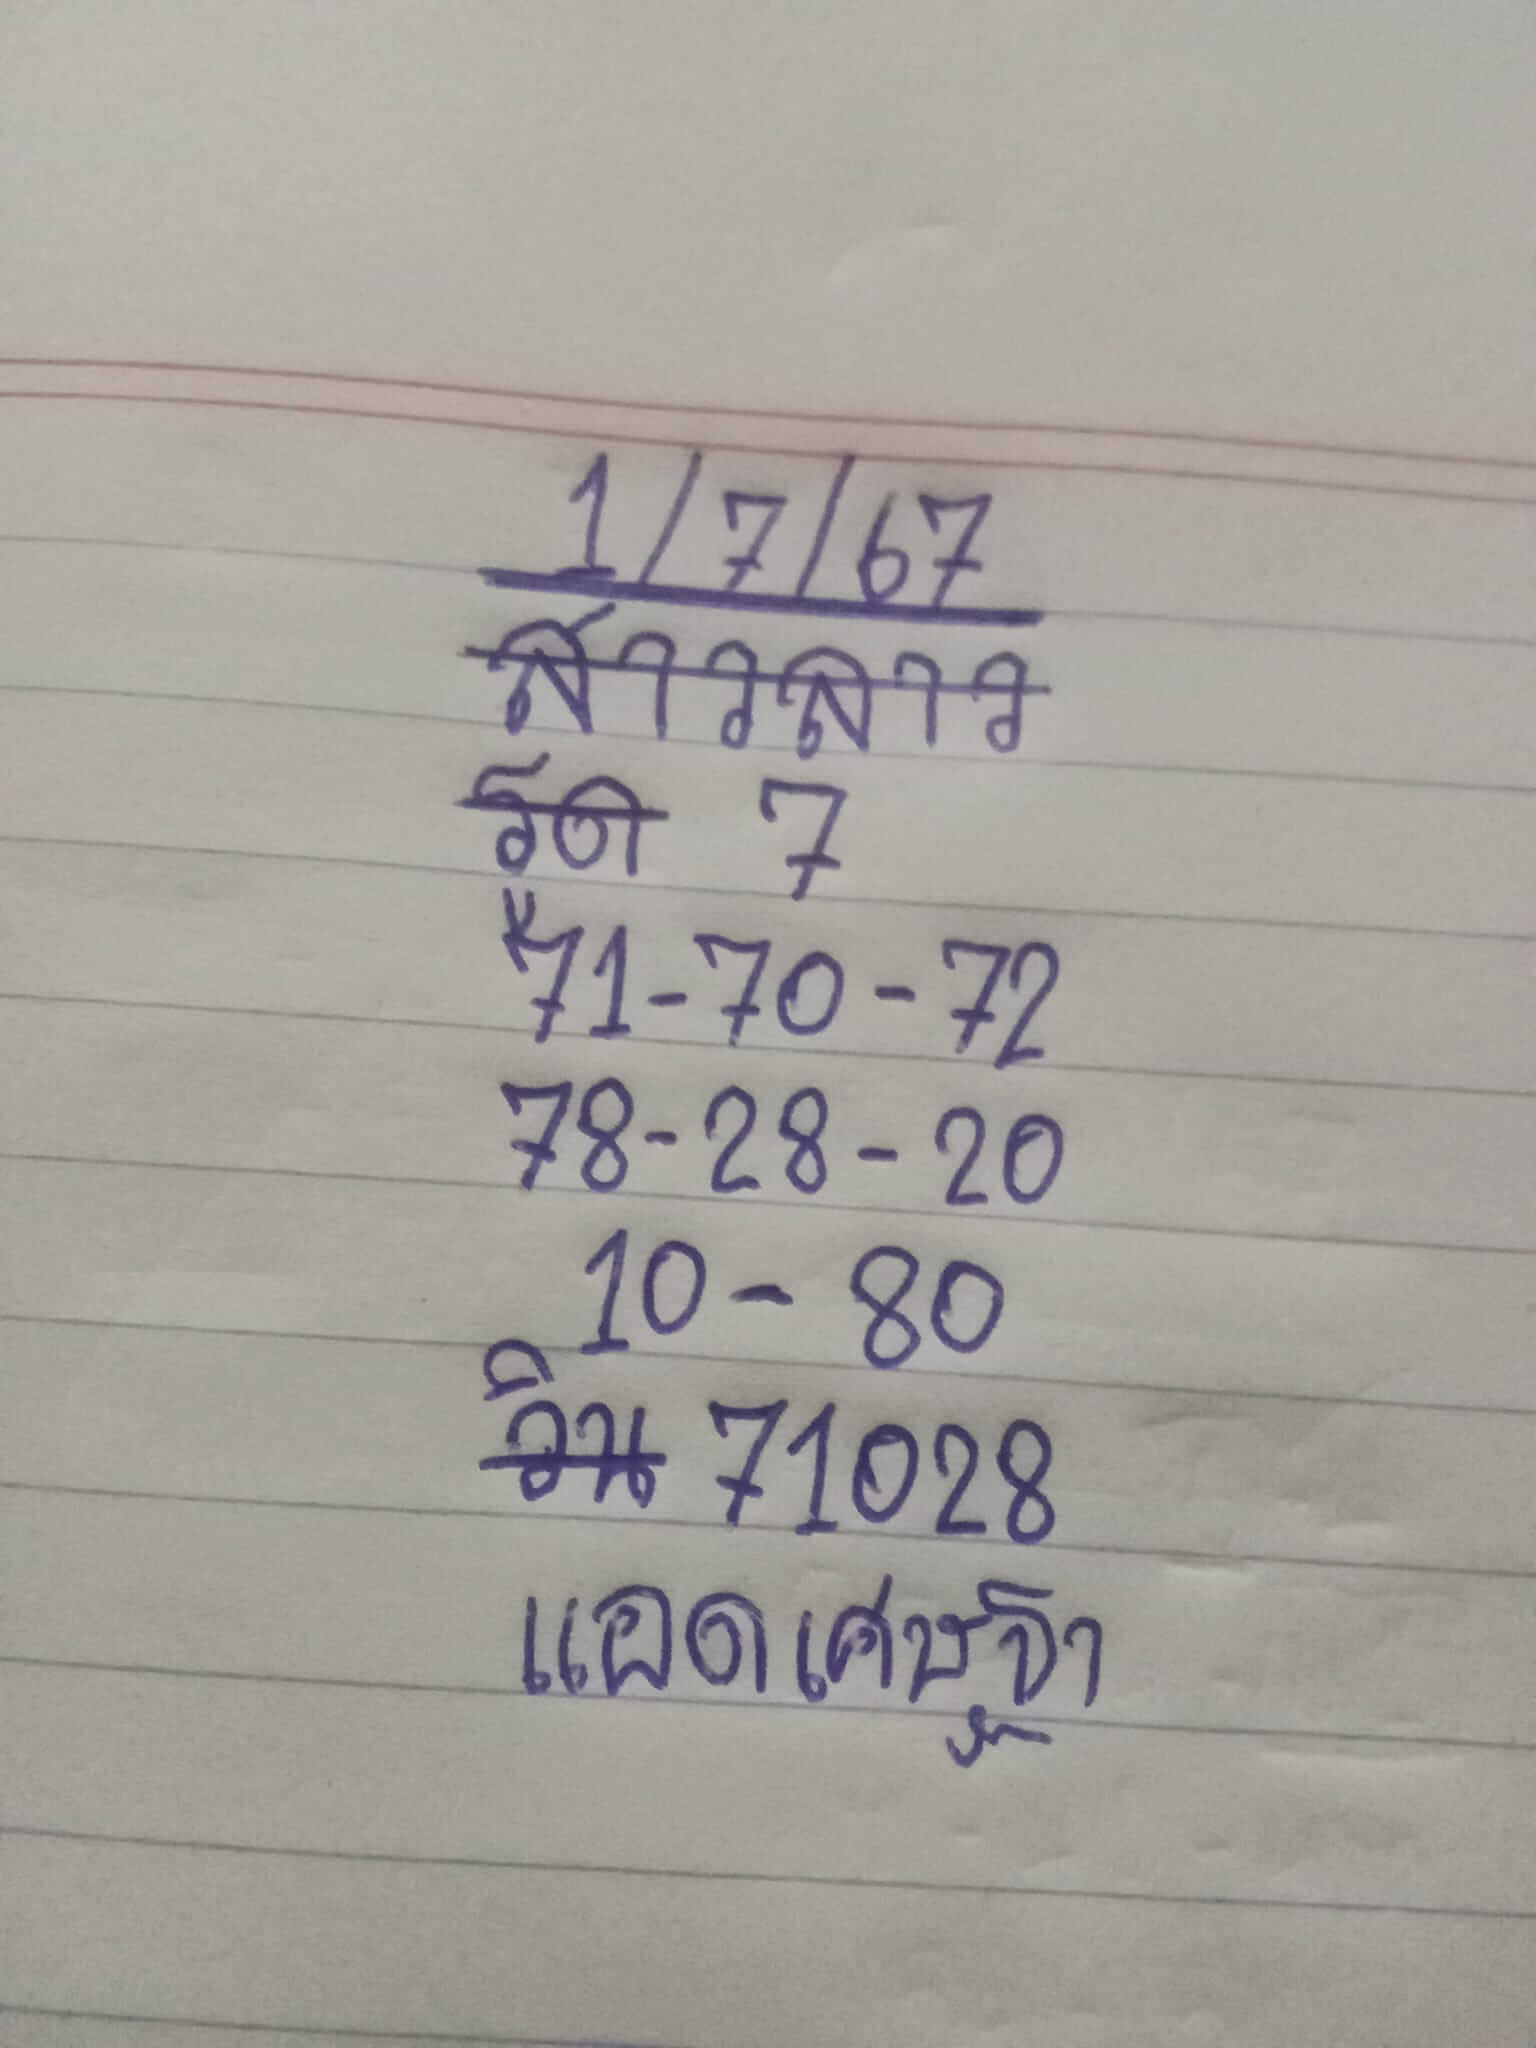 1/7/67
สาวลาว
รูด 7
71-70-72
78-28-20
10-80
วิน 71028
แอด เศษฐา